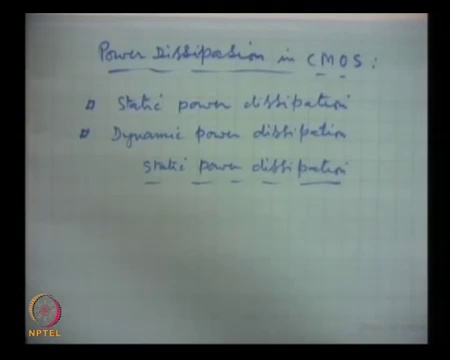 Power Dissipation in CMOS :
1) Static power dissipation
2) Dynamic power dissipation
static power dissipation
NPTEL